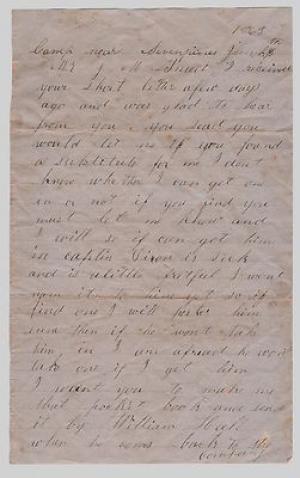 186
Camp near Sevenpines June
Mr J M I received
your short letter a few day
ago and was glad to hear
from you you said you
would let me if you found
a substitute for me I dont
know whether I can get one
in or not if you find you
must let me know and
I will se if can get him
in captin is sick
and is alittle fretful I wont
name it to him yet so if
find one I will him
in and then if he wont take
him in I am afraid he wont
take one if I get him
I want you to make me
that pocket book and send
it by William Hall
when he coms back to the
company